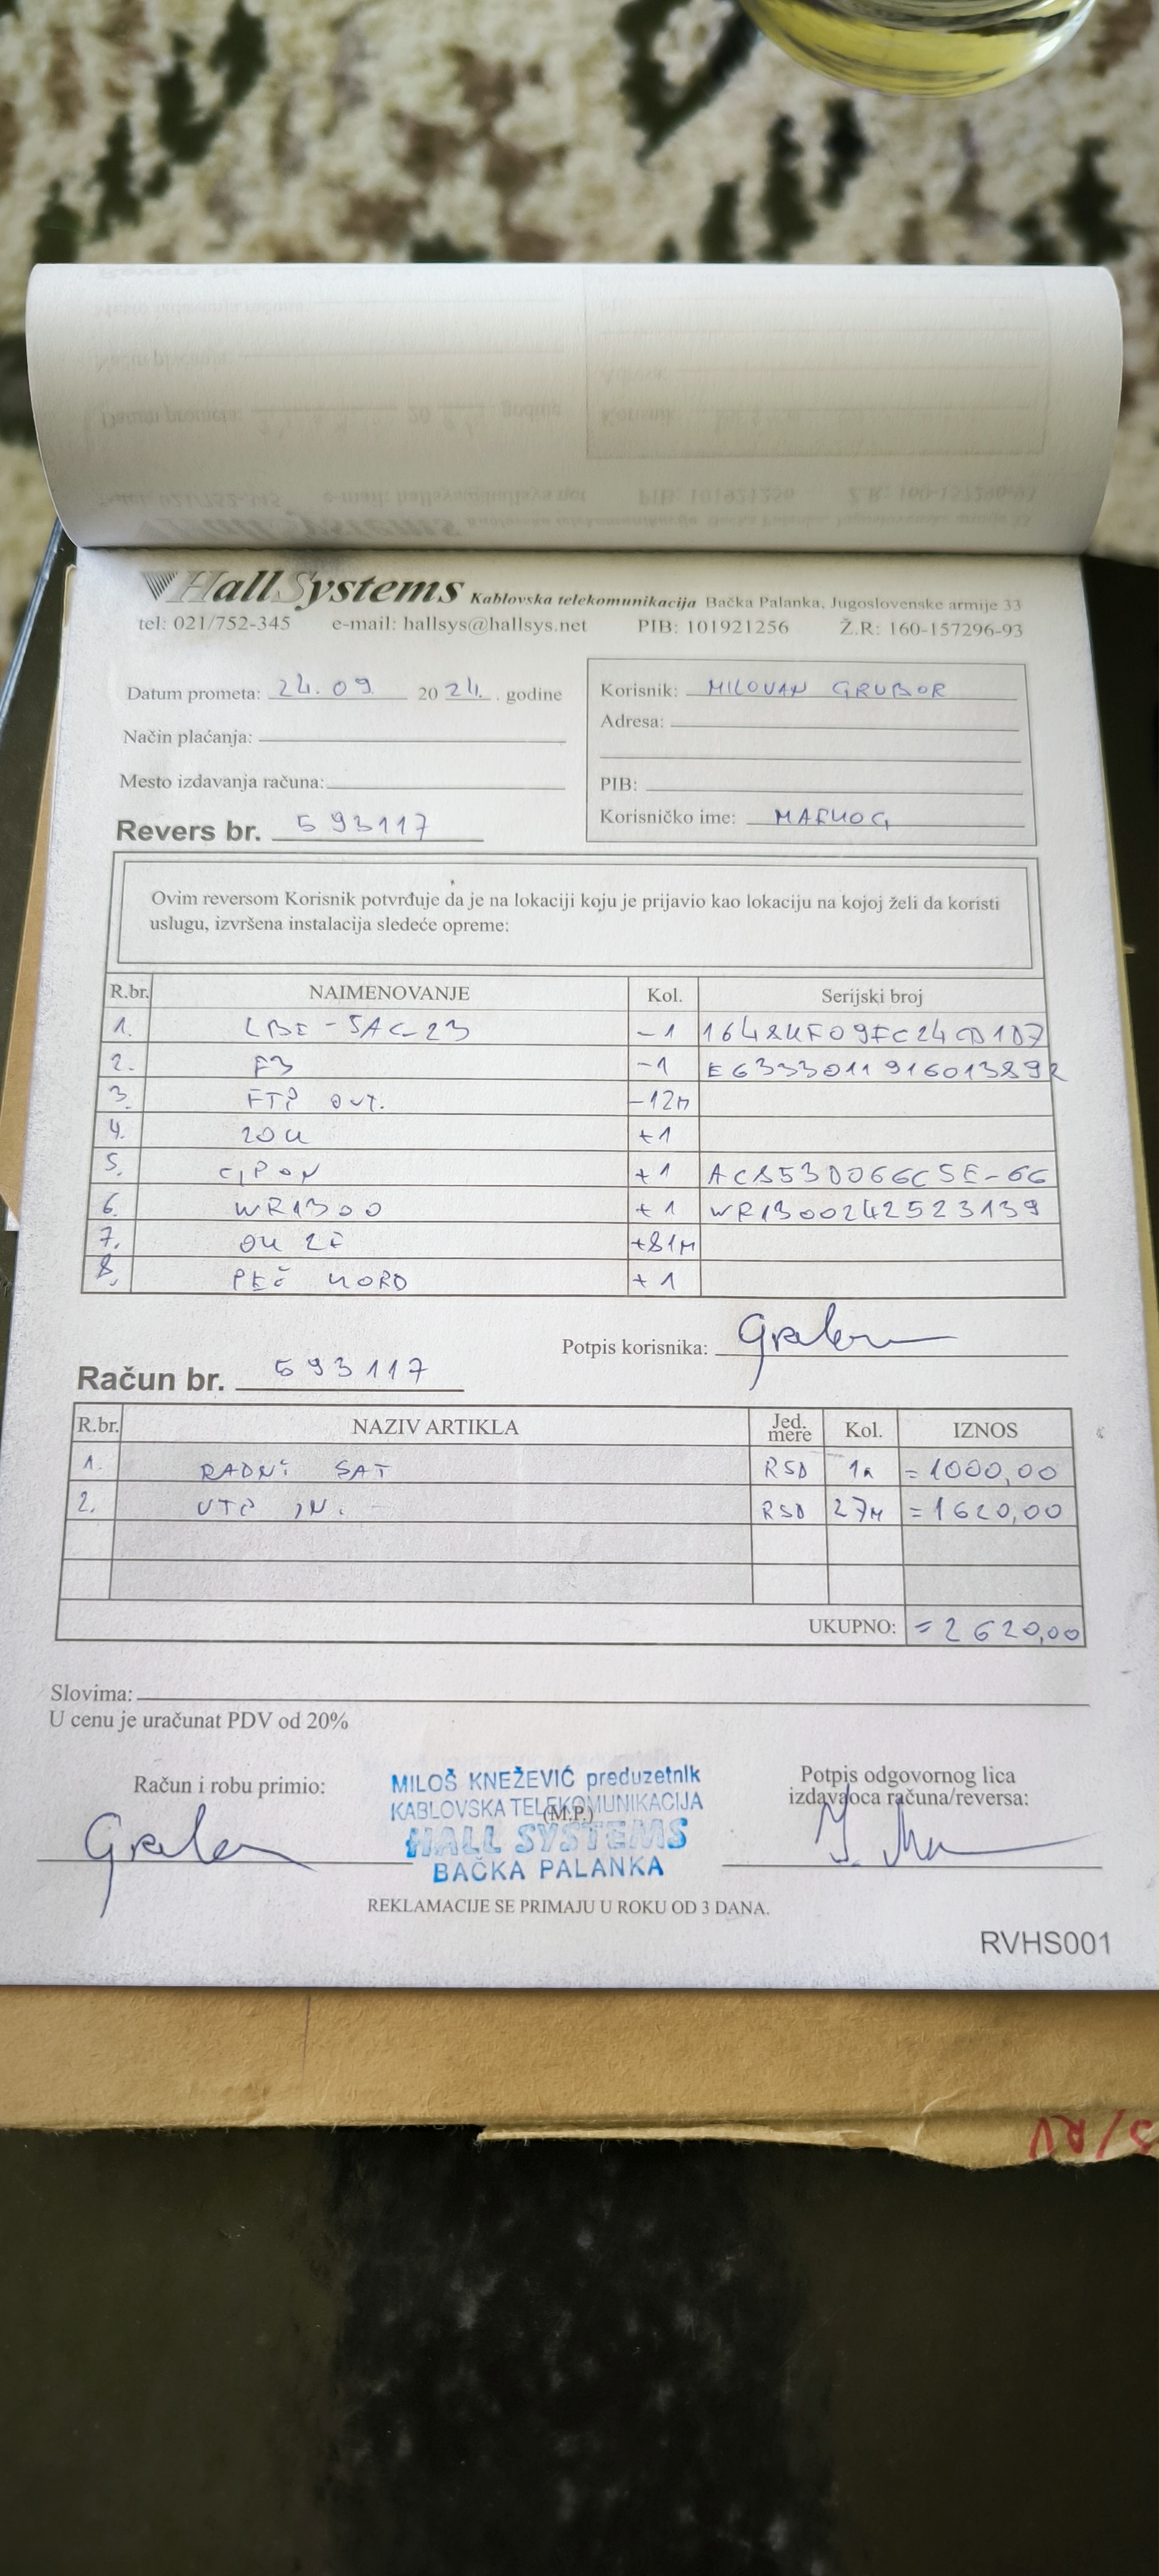 HallSystems Kablovska telekomunikacija Bačka Palanka, Jugoslovenske armije 33
tel: 021/752-345 e-mail: hallsys@hallsys.net PIB: 101921256 Ž.R: 160-157296-93
Datum prometa: 24.09 2024. godine
Način plaćanja:
Mesto izdavanja računa:
Revers br. 593117
Korisnik: MILOVAN GRUBOR
Adresa:
PIB:
Korisničko ime: MARKOG
Ovim reversom Korisnik potvrđuje da je na lokaciji koju je prijavio kao lokaciju na kojoj želi da koristi
uslugu, izvršena instalacija sledeće opreme:
R.br. NAIMENOVANJE Kol. Serijski broj
1. LBE-5AC-23 -1
2. F3 -1
3. FTP OUT. -12M
4. ZOK +1
5. GPON +1
6. WR1300 +1 WR1300242523139
7. OK 2F +81M
8. PEČ KORD +1
Potpis korisnika:
Račun br. 593117
R.br. NAZIV ARTIKLA Jed. mere Kol. IZNOS
1. RADNI SAT RSD =1000,00
2. UTP IN. RSD 27M =1620,00
UKUPNO: =2620,00
Slovima:
U cenu je uračunat PDV od 20%
Račun i robu primio:
MILOŠ KNEŽEVIĆ preduzetnik
KABLOVSKA TELEKOMUNIKACIJA
(M.P.)
HALL SYSTEMS
BAČKA PALANKA
Potpis odgovornog lica
izdavaoca računa/reversa:
REKLAMACIJE SE PRIMAJU U ROKU OD 3 DANA.
RVHS001